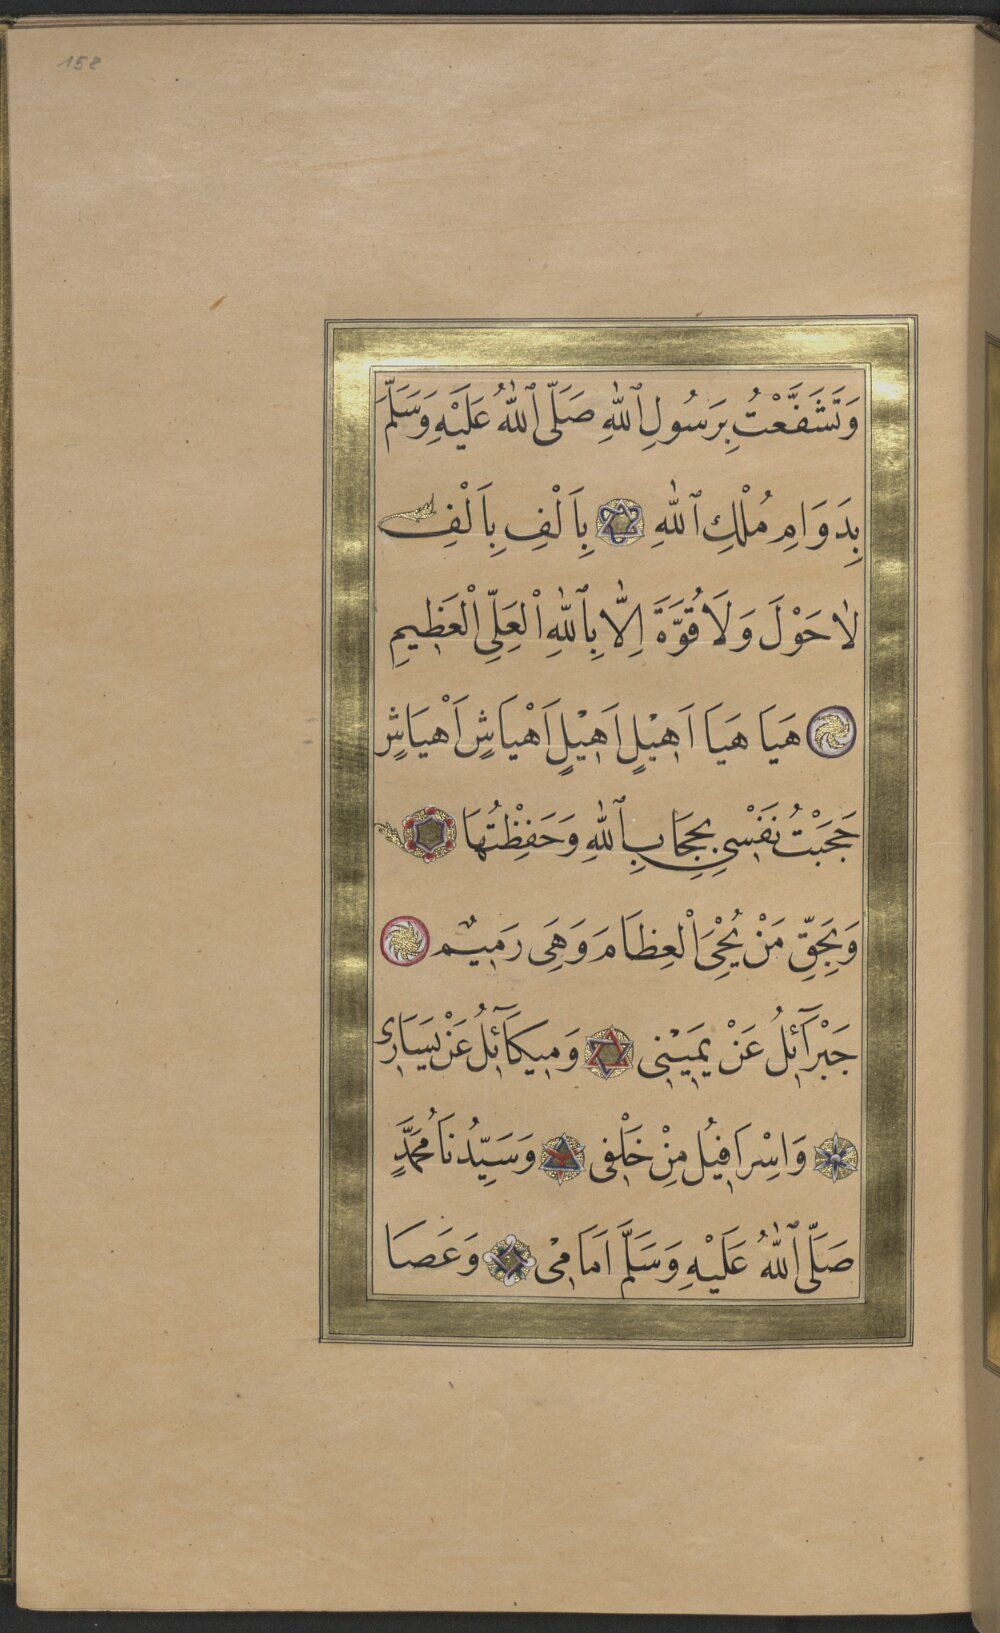 158
وَتَشَفَّعْتُ بِرَسُولِ ٱللّٰهِ صَلَّى ٱللّٰهُ عَلَيْهِ وَسَلَّمَ
بِدَوَامِ مُلْكِ ٱللّٰهِ بِاَلْفِ بِاَلْفِ
لاٰ حَوْلَ وَلَا قُوَّةَ اِلّٰا بِٱللّٰهِ الْعَلِّىِ الْعَظِيمِ
هَيَا هَيَا اَهِيْلٍ اَهِيْلٍ اَهْيَاشٍ اَهْيَاشٍ
حَجَبْتُ نَفْسِى بِحِجَابِ ٱللّٰهِ وَحَفِظْتُهَا
وَبِحَقِّ مَنْ يُحْيِى الْعِظَامَ وَهِىَ رَمِيمٌ
جَبْرَآئِلُ عَنْ يَمِيْنِى وَمِيكَآئِلُ عَنْ يَسَارِى
وَاِسْرَافِيُل مِنْ خَلْفِى وَسَيِّدُنَا مُحَمَّدٍ
صَلَّى ٱللّٰهُ عَلَيْهِ وَسَلَّمَ اَمَامِىْ وَعَصَا